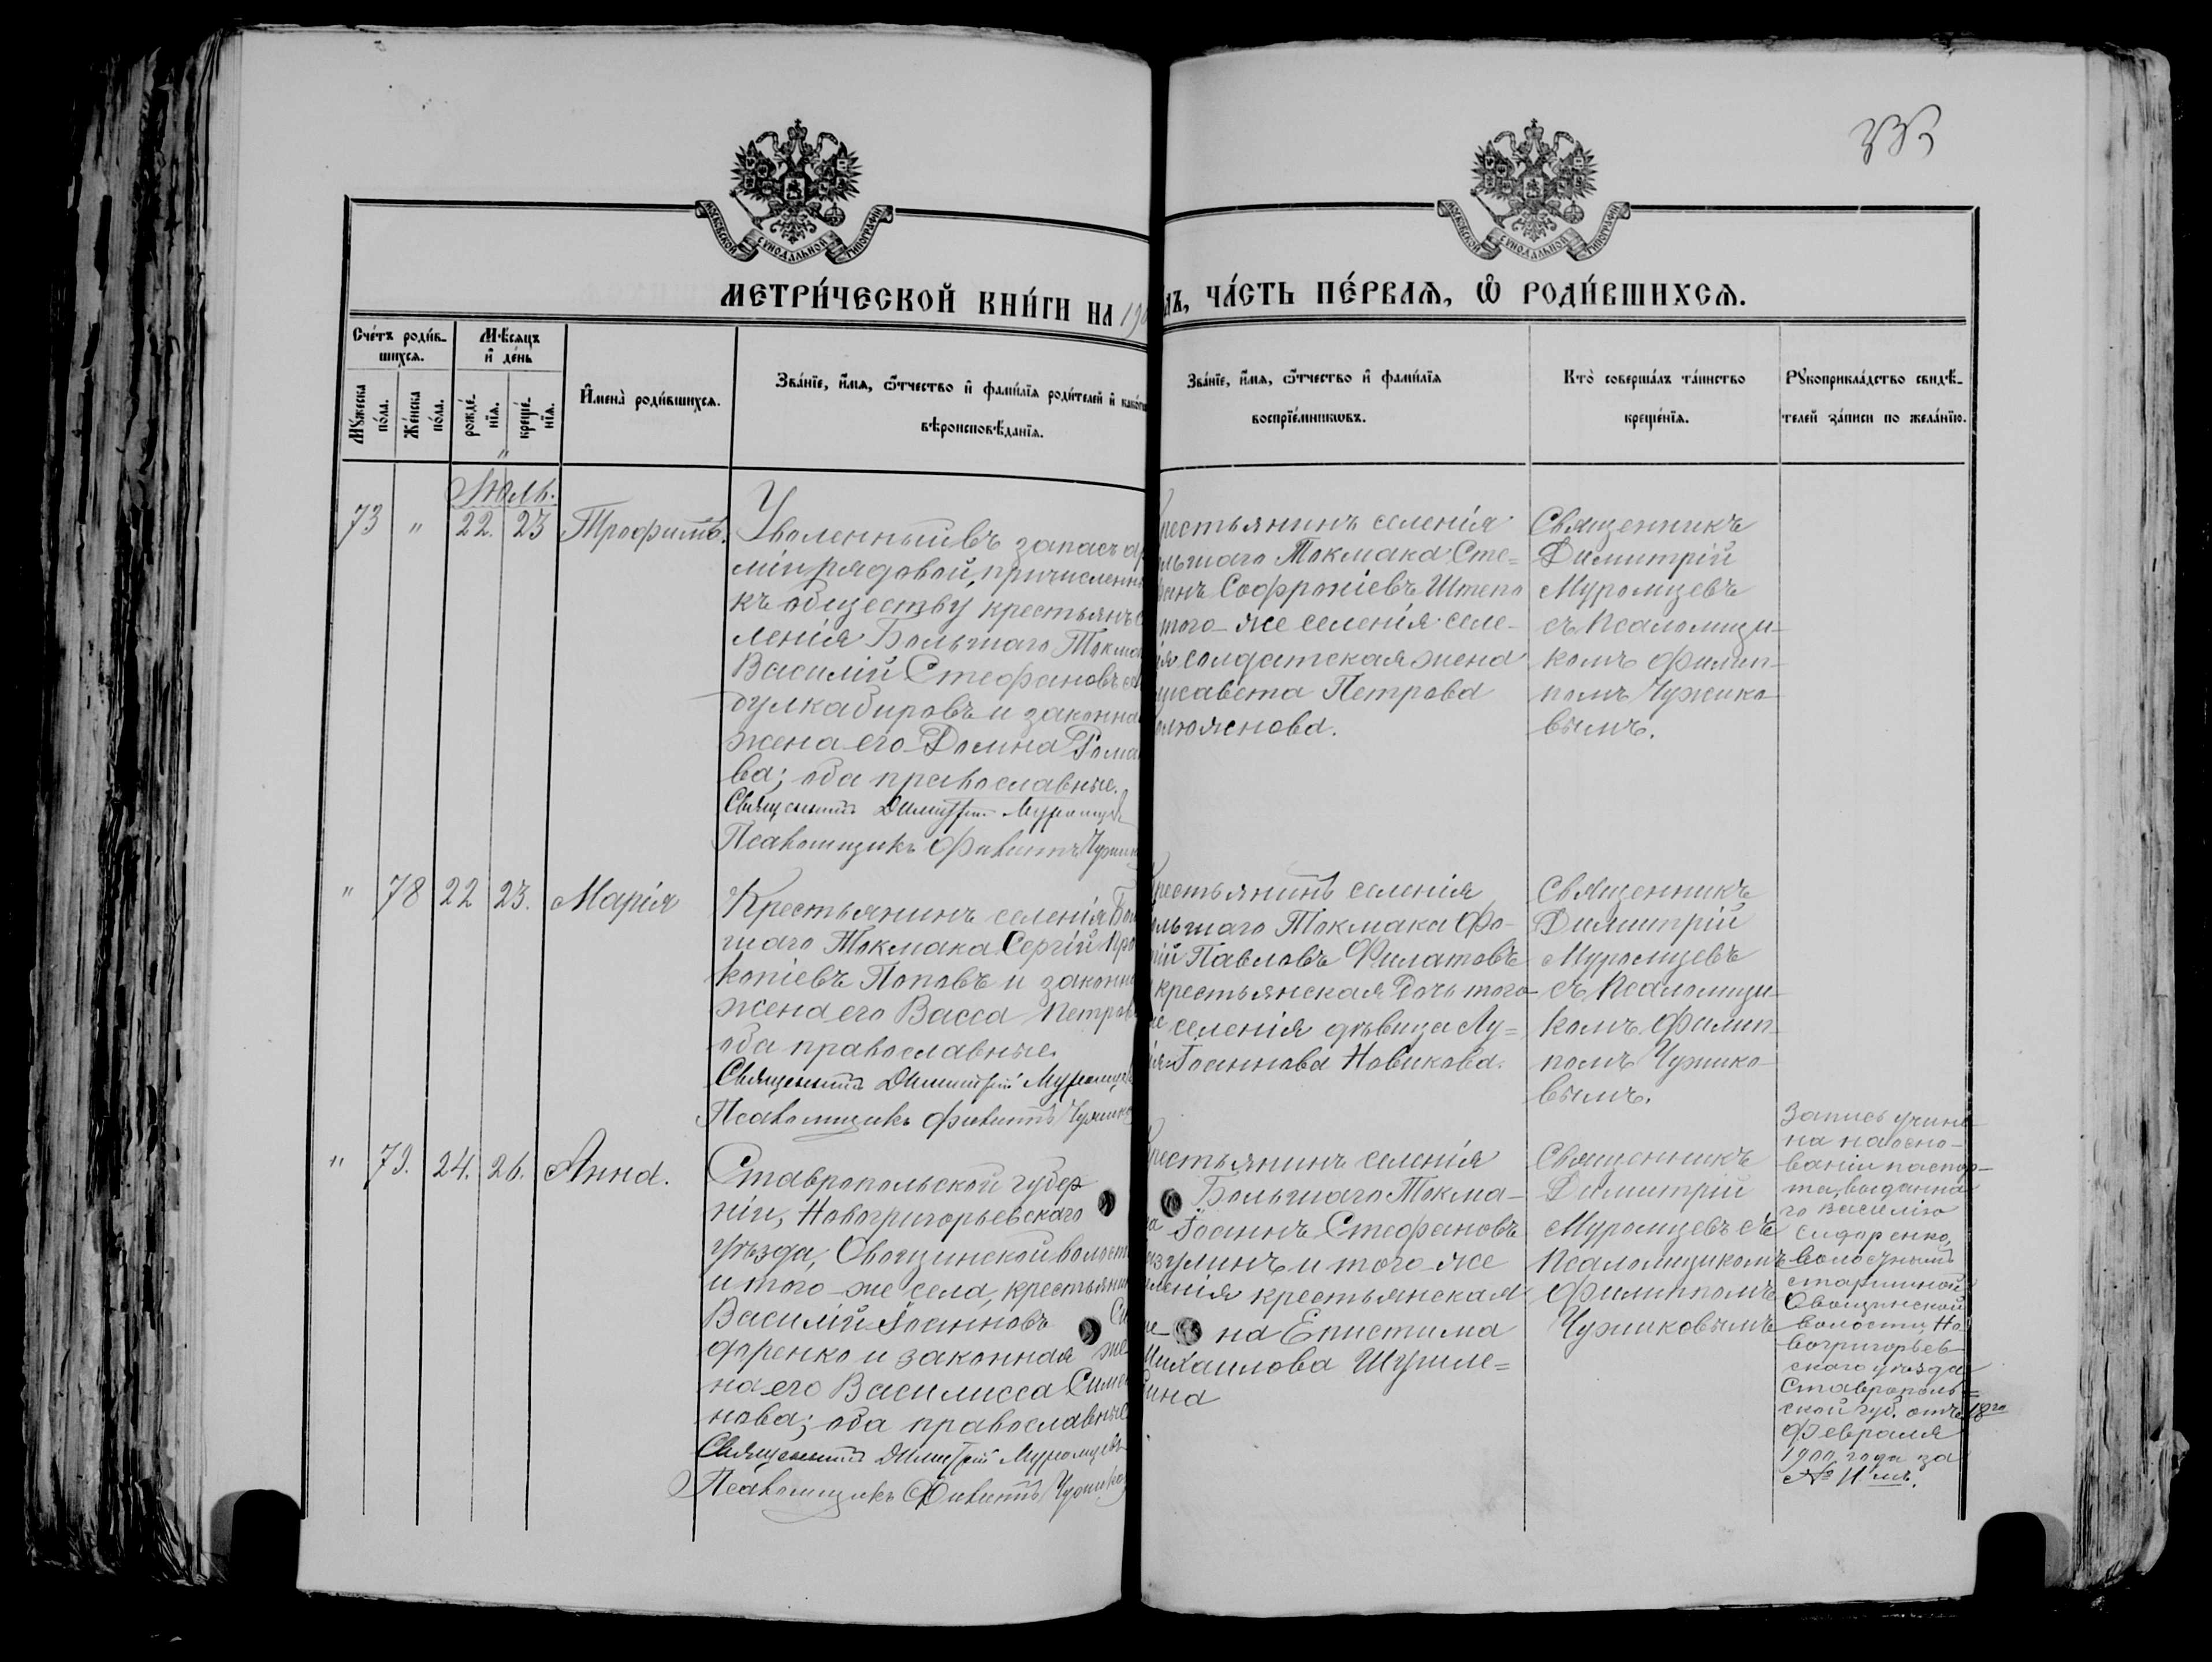 333
МОСКОВСКОЙ СѴНОДАЛЬНОЙ ТИПОГРАФІИ
МОСКОВСКОЙ СѴНОДАЛЬНОЙ ТИПОГРАФІИ
МЕТРИ́ЧЕСКОЙ КНИ́ГИ НА 190
ДЪ, ЧА́СТЬ ПЕ́РВАѦ, Ѡ҆ РОДИ́ВШИХСѦ.
Сче́тъ роди́в-
шихсѧ.
Мꙋ́жеска
по́ла.
Же́нска
по́ла.
Мѣ́сѧцъ
и҆ де́нь
рожде́-
нїѧ.
креще́-
нїѧ.
И҆мена̀ роди́вшихсѧ.
Зва́нїе, и҆́мѧ, ѻ҆́тчество и҆ фами́лїѧ роди́телей и҆ како́гѡ
вѣроисповѣ́данїѧ.
Зва́нїе, и҆́мѧ, ѻ҆́тчество и҆ фами́лїѧ
воспрїе́мникѡвъ.
Кто̀ соверша́лъ та́инство
креще́нїѧ.
Рꙋкоприкла́дство свидѣ́-
телей за́писи по жела́нїю.
Іюль.
73 " 22. 23 Трофимъ.
Уволенный въ запасъ ар
міи рядовой, причисленн
къ обществу крестьянъ с
ленія Большаго Токма
Василій Стефановъ
дулкадировъ и законна
жена его Домна Рома
ва; оба православные.
Священникъ Димитрій Муромцев
Псаломщикъ Филиппъ Чужик
рестьянинъ селенія
льшаго Токмака Сте-
фанъ Софроніевъ Штепо
того-же селенія селе-
ія солдатская жена
исавета Петрова
люянова.
Священникъ
Димитрій
Муромцевъ
съ Псаломщи-
комъ Филип-
помъ Чужико-
вымъ.
" 78 22 23. Марія
Крестьянинъ селенія Бол
шаго Токмака Сергій Про
копіевъ Поповъ и законн
жена его Васса Петров
оба православные.
Священникъ Димитрій Муромцев
Псаломщикъ Филиппъ Чужико
рестьянинъ селенія
ольшаго Токмака Фо-
тій Павловъ Филатовъ
крестьянская дочь того-
же селенія дѣвица Лу-
Іоаннова Новикова.
Священникъ
Димитрій
Муромцевъ
съ Псаломщи-
комъ Филип-
помъ Чужико-
вымъ.
" 79. 24. 26. Анна.
Ставропольской губер
ніи, Новогригорьевскаго
уѣзда, Овощинской волост
и того-же села, крестьянин
Василій Іоанновъ Си
доренко и законная же
на его Василисса Симе
нова; оба православные
Священникъ Димитрій Муромцевъ
Псаломщикъ Филиппъ Чужиков
рестьянинъ селенія
Большаго Токма-
ка Іоаннъ Стефановъ
зулинъ и того-же
селенія крестьянская
же-на Епистима
Михаилова Шуриле=
ина
Священникъ
Димитрій
Муромцевъ съ
Псаломщикомъ
Филиппомъ
Чужиковымъ
Запись учине-
на на осно-
ваніи паспор-
та, выданна-
го Василію
Сидоренко,
волостнымъ
старшиной
Овощинской
волости, Но-
вогригорьев-
скаго уѣзда
Ставрополь=
ской губ. отъ 18го
Февраля
1900 года за
№ 11 мъ.